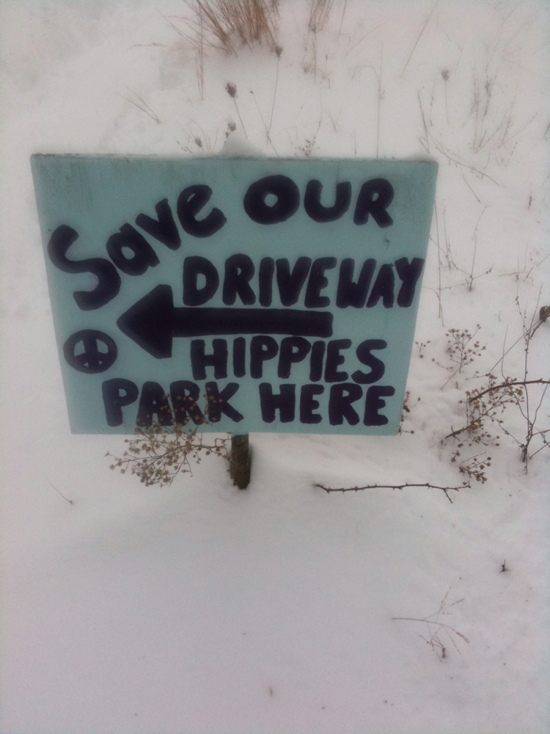 Save OUR
DRIVEWAY
HIPPIES
PARK HERE